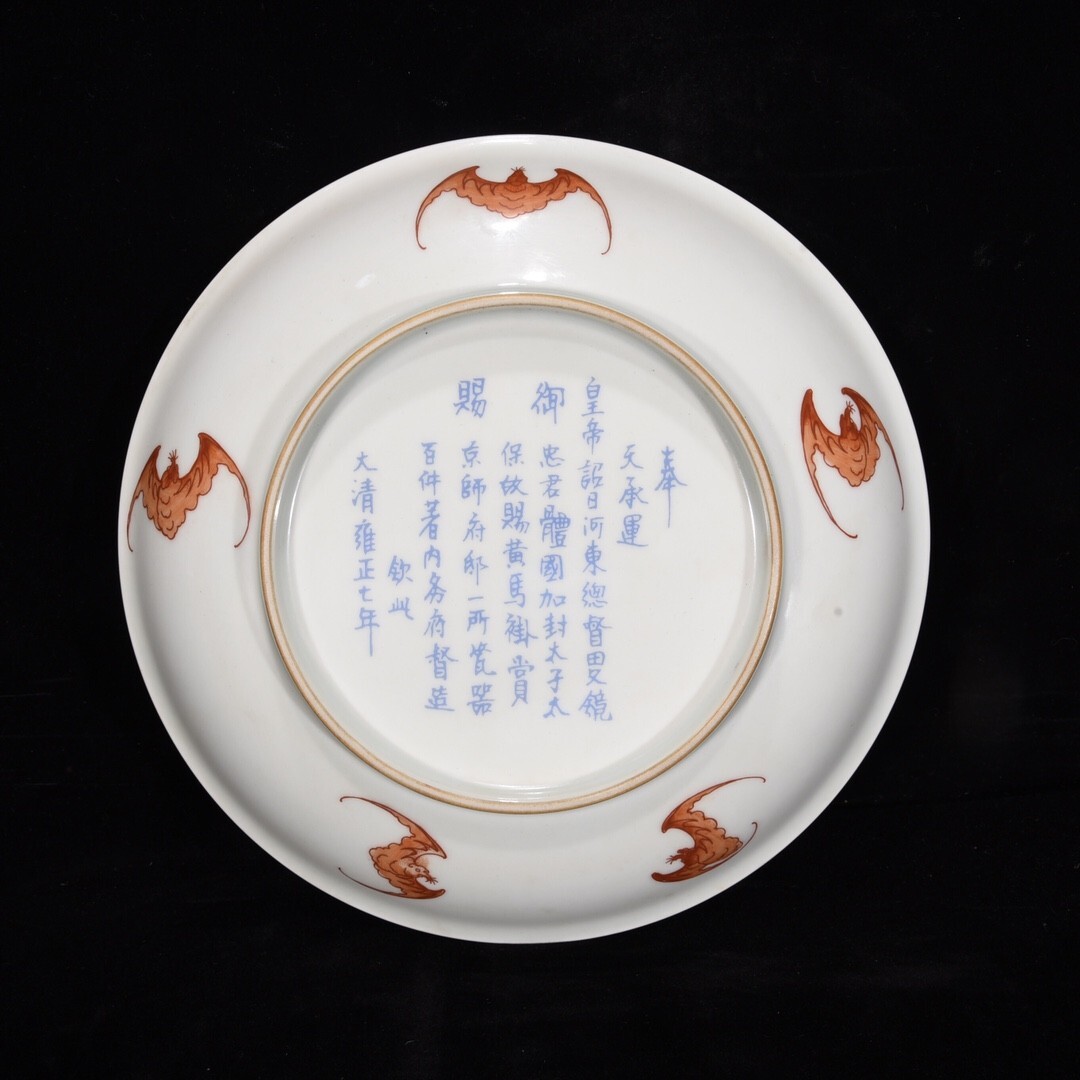 奉
天承運
皇帝詔曰河東總督田文鏡
御忠君體國加封太子太
保故賜黃馬褂賞
賜京師府邸一所瓷器
百件著內务府督造
欽此
大清雍正七年